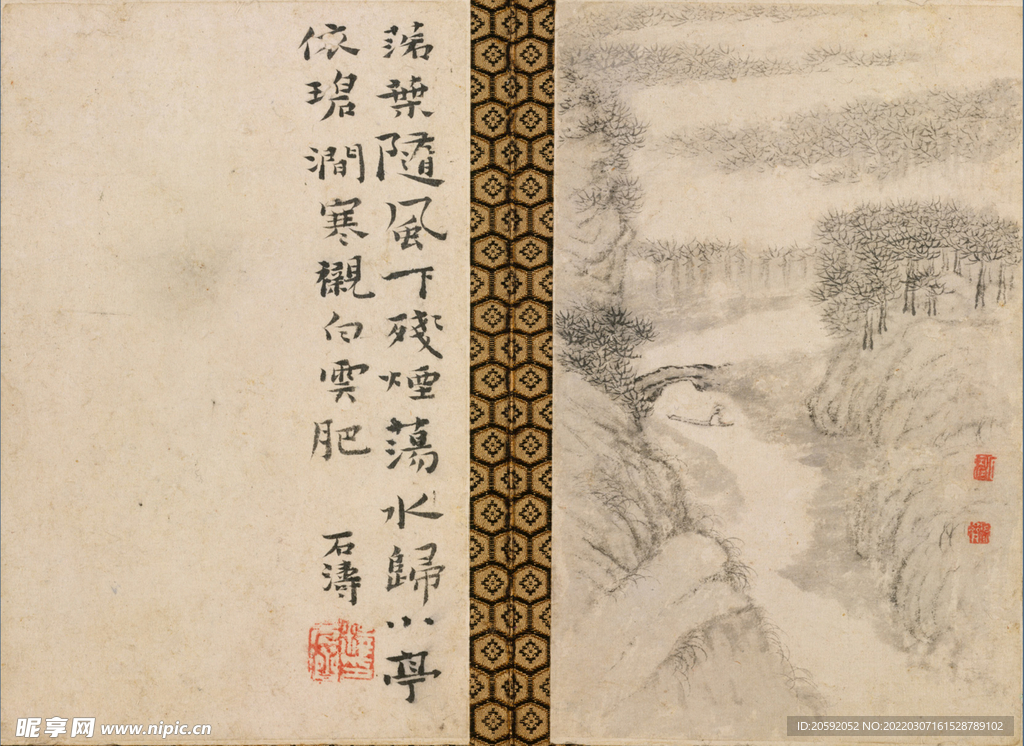 落葉隨風下殘煙蕩水歸小亭
依碧澗寒襯白雲肥
石濤
昵享网 www.nipic.cn
ID:20592052 NO:20220307161528789102